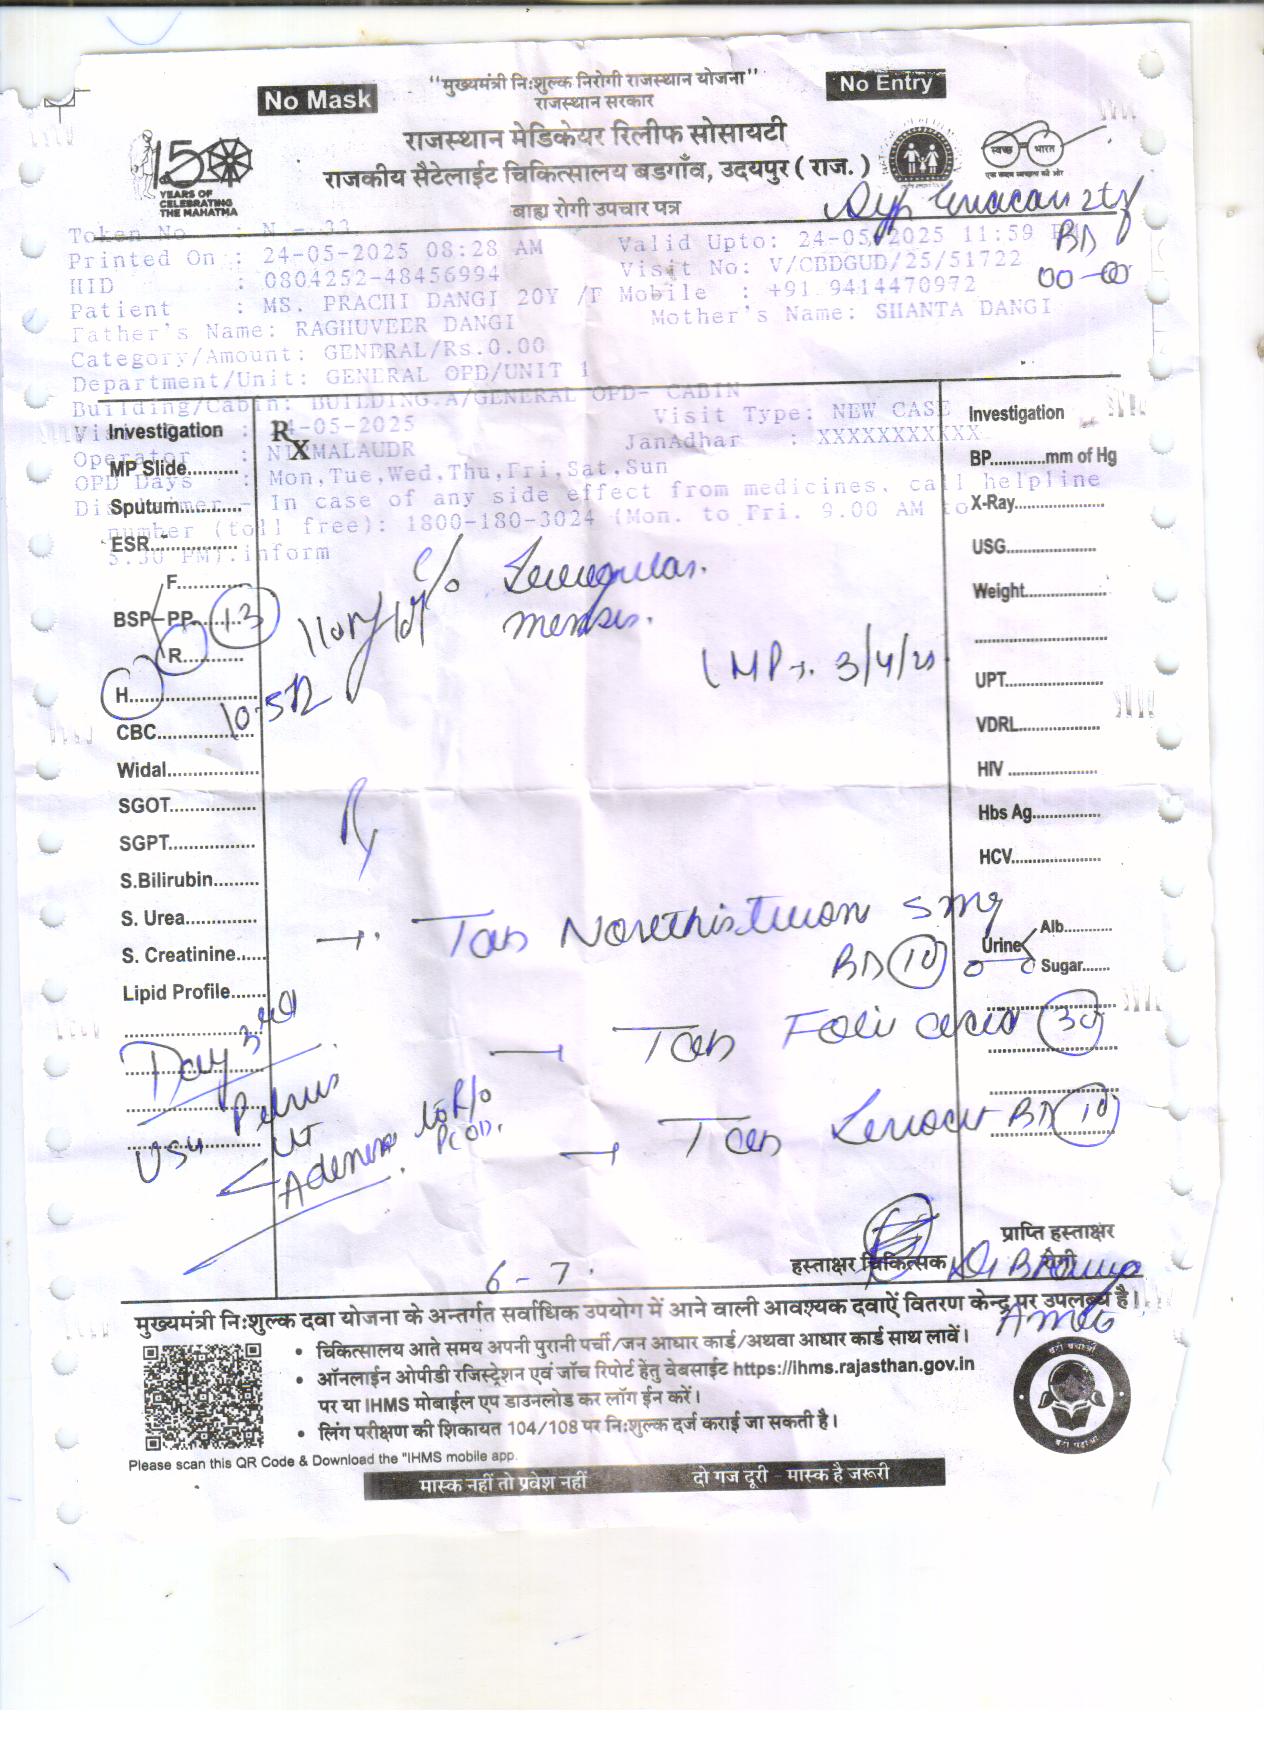 "मुख्यमंत्री निःशुल्क निरोगी राजस्थान योजना"
No Mask
No Entry
राजस्थान सरकार
राजस्थान मेडिकेयर रिलीफ सोसायटी
राजकीय सैटेलाईट चिकित्सालय बडगाँव, उदयपुर ( राज. )
150
YEARS OF
CELEBRATING
THE MAHATMA
स्वच्छ भारत
एक कदम स्वच्छता की ओर
बाह्य रोगी उपचार पत्र
BD
Token No : N - 33
Printed On : 24-05-2025 08:28 AM Valid Upto: 24-05-2025 11:59 PM
HID : 0804252-48456994 Visit No: V/CBDGUD/25/51722
Patient : MS. PRACHI DANGI 20Y /F Mobile : +91 9414470972
Father's Name: RAGHUVEER DANGI Mother's Name: SHANTA DANGI
Category/Amount: GENERAL/Rs.0.00
Department/Unit: GENERAL OPD/UNIT 1
Building/Cabin: BUILDING.A/GENERAL OPD- CABIN
-05-2025 Visit Type: NEW CASE
Operator : NIRMALAUDR JanAdhar : XXXXXXXXXXX
OPD Days : Mon,Tue,Wed,Thu,Fri,Sat,Sun
Disclaimer - In case of any side effect from medicines, call helpline
number (toll free): 1800-180-3024 (Mon. to Fri. 9.00 AM to
5.30 PM).inform
Investigation
Rx
MP Slide..........
Sputum............
ESR................
BSP
F............
PP.......
R...........
H.......................
CBC..................
Widal.................
SGOT................
SGPT................
S.Bilirubin.........
S. Urea.............
S. Creatinine......
Lipid Profile.......
Investigation
BP............mm of Hg
X-Ray...................
USG...................
Weight.................
UPT....................
VDRL.................
HIV ....................
Hbs Ag...............
HCV...................
Urine
Alb...........
Sugar.......
c/o
menses.
LMP → 3/4/25
Rx
→ Tab Norethisteron 5mg
BD (10)
→ Tab Folic acid (30)
→ Tab BD (10)
Day 3rd
USG Pelvis
R/o
PCOD.
6-7.
हस्ताक्षर चिकित्सक
प्राप्ति हस्ताक्षर
रोगी
मुख्यमंत्री निःशुल्क दवा योजना के अन्तर्गत सर्वाधिक उपयोग में आने वाली आवश्यक दवाऐं वितरण केन्द्र पर उपलब्ध है।
• चिकित्सालय आते समय अपनी पुरानी पर्ची/जन आधार कार्ड/अथवा आधार कार्ड साथ लावें।
• ऑनलाईन ओपीडी रजिस्ट्रेशन एवं जाँच रिपोर्ट हेतु वेबसाईट https://ihms.rajasthan.gov.in
पर या IHMS मोबाईल एप डाउनलोड कर लॉग ईन करें।
• लिंग परीक्षण की शिकायत 104/108 पर निःशुल्क दर्ज कराई जा सकती है।
Please scan this QR Code & Download the "IHMS mobile app.
मास्क नहीं तो प्रवेश नहीं दो गज दूरी - मास्क है जरूरी